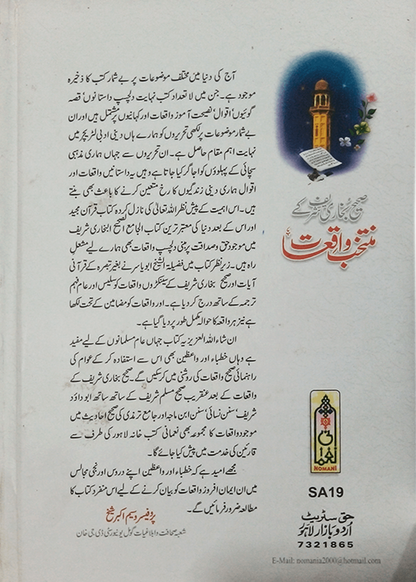 آج کی دنیا میں مختلف موضوعات پر بے شمار کتب کا ذخیرہ
موجود ہے۔ جن میں لا تعداد کتب نہایت دلچسپ داستانوں' قصہ
گوئیوں' اقوال' نصیحت آموز واقعات اور کہانیوں پر مشتمل ہیں اور ان
بے شمار موضوعات پر لکھی تحریروں کو ہمارے ہاں دینی ادبی لٹریچر میں
نہایت اہم مقام حاصل ہے۔ ان تحریروں سے جہاں ہماری مذہبی
سچائی کے پہلوؤں کو اجاگر کیا جاتا ہے وہیں یہ داستانیں واقعات اور
اقوال ہماری دینی زندگیوں کا رخ متعین کرنے کا باعث بھی بنتے
ہیں۔ اس اہمیت کے پیش نظر اللہ تعالیٰ کی نازل کردہ کتاب قرآن مجید
اور اس کے بعد دنیا کی معتبر ترین کتاب الجامع الصحیح البخاری شریف
میں موجود حق و صداقت پر مبنی دلچسپ واقعات بھی ہمارے لیے مشعل
راہ ہیں۔ زیر نظر کتاب میں فضیلۃ الشیخ ابو یاسر نے بغیر تبصرہ کے قرآنی
آیات اور صحیح بخاری شریف کے سینکڑوں واقعات کو سلیس اور عام فہم
ترجمہ کے ساتھ درج کر دیا ہے۔ اور واقعات کو مضامین کے تحت لکھا
ہے نیز ہر واقعہ کا حوالہ مکمل طور پر دیا گیا ہے۔
ان شاء اللہ العزیز یہ کتاب جہاں عام مسلمانوں کے لیے مفید
ہے وہاں خطباء اور واعظین بھی اس سے استفادہ کر کے عوام کی
راہنمائی صحیح واقعات کی روشنی میں کر سکیں گے۔ صحیح بخاری شریف کے
واقعات کے بعد عنقریب صحیح مسلم شریف کے ساتھ ساتھ ابو داؤد
شریف' سنن نسائی' سنن ابن ماجہ اور جامع ترمذی کی صحیح احادیث میں
موجود واقعات کا مجموعہ بھی نعمانی کتب خانہ لاہور کی طرف سے
قارئین کی خدمت میں پیش کیا جائے گا۔
مجھے امید ہے کہ خطباء اور واعظین اپنے دروس اور نجی مجالس
میں ان ایمان افروز واقعات کو بیان کرنے کے لیے اس منفرد کتاب کا
مطالعہ ضرور فرمائیں گے۔
پروفیسر وسیم اکبر شیخ
شعبہ صحافت و ابلاغیات گومل یونیورسٹی ڈی جی خان
صحیح بخاری شریف کے
منتخب واقعات
NOMANI
SA19
حق سٹریٹ
اردو بازار لاہور
7321865
E-Mail: nomania2000@hotmail.com